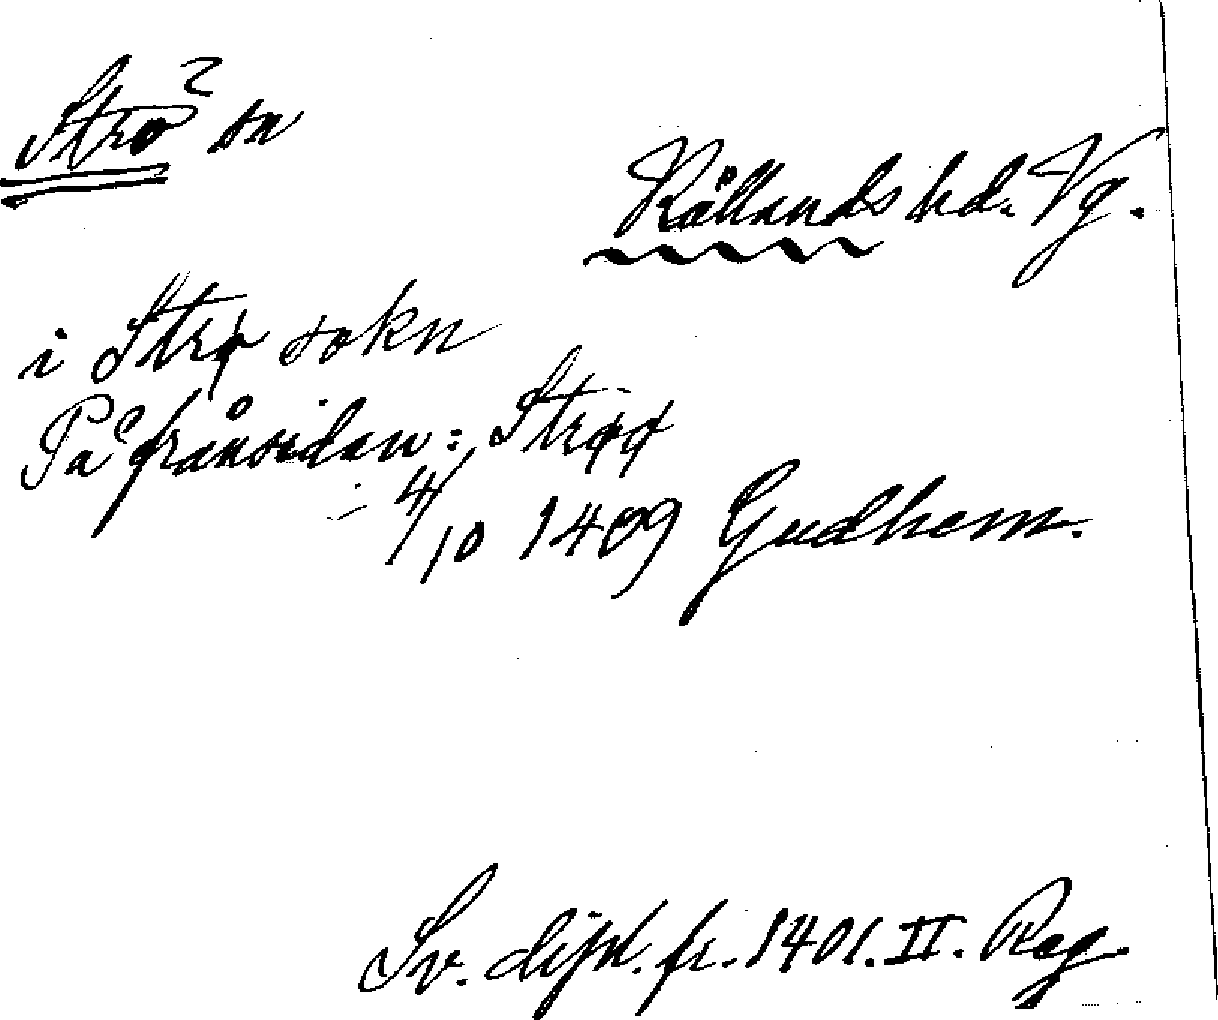 Strö sn
Kållands hd. Vg.
i Strø sokn
På frånsidan: Strøø
4/10 1409 Gudhem.
Sv. dipl. fr. 1401. II. Reg.